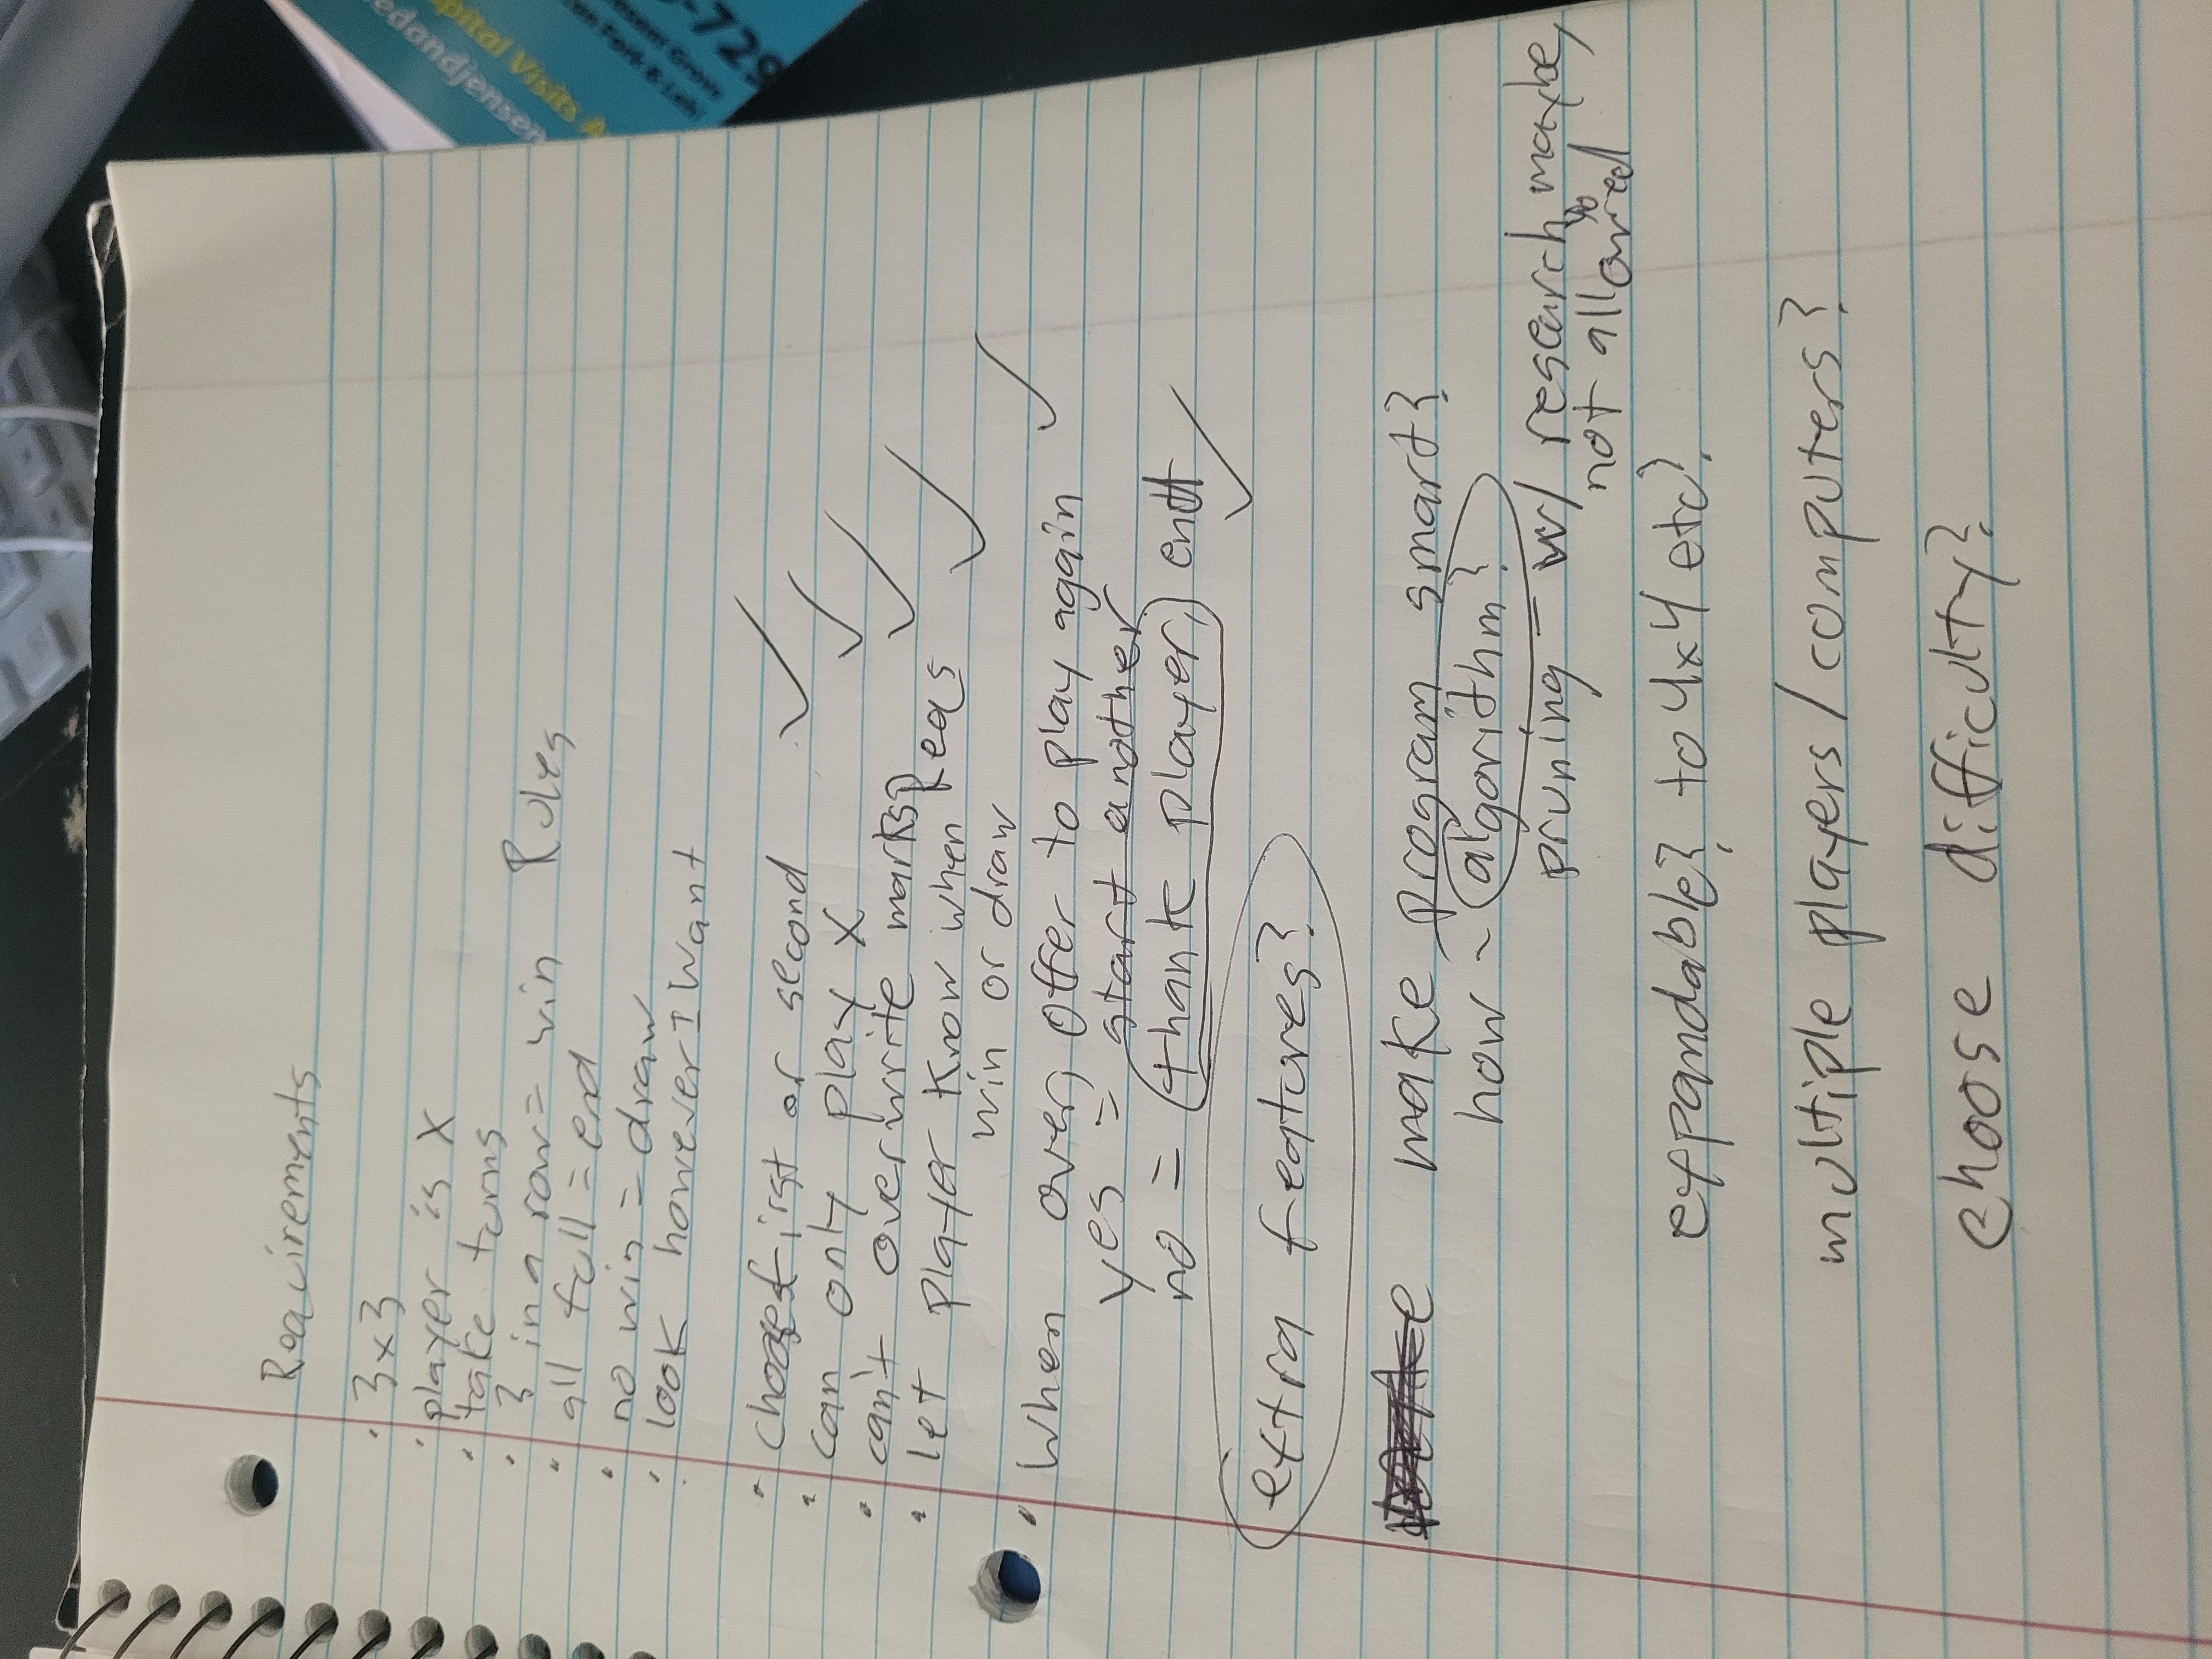 Requirements
· 3x3
· player is X
· take turns
· 3 in a row = win Rules
· all full = end
· no win = draw
· look however I Want
· choose first or second ✓
· can only play X ✓
· can't overwrite marks ✓
· let player know when Reqs ✓
win or draw
· When over, offer to play again ✓
yes = start another
no = thank player, end ✓
extra features?
make program smart?
how - algorithm?
pruning - w/ research, maybe,
not allowed
expandable? to 4x4 etc?
multiple players/computers?
choose difficulty?
edandjensen
pital Visits A
729